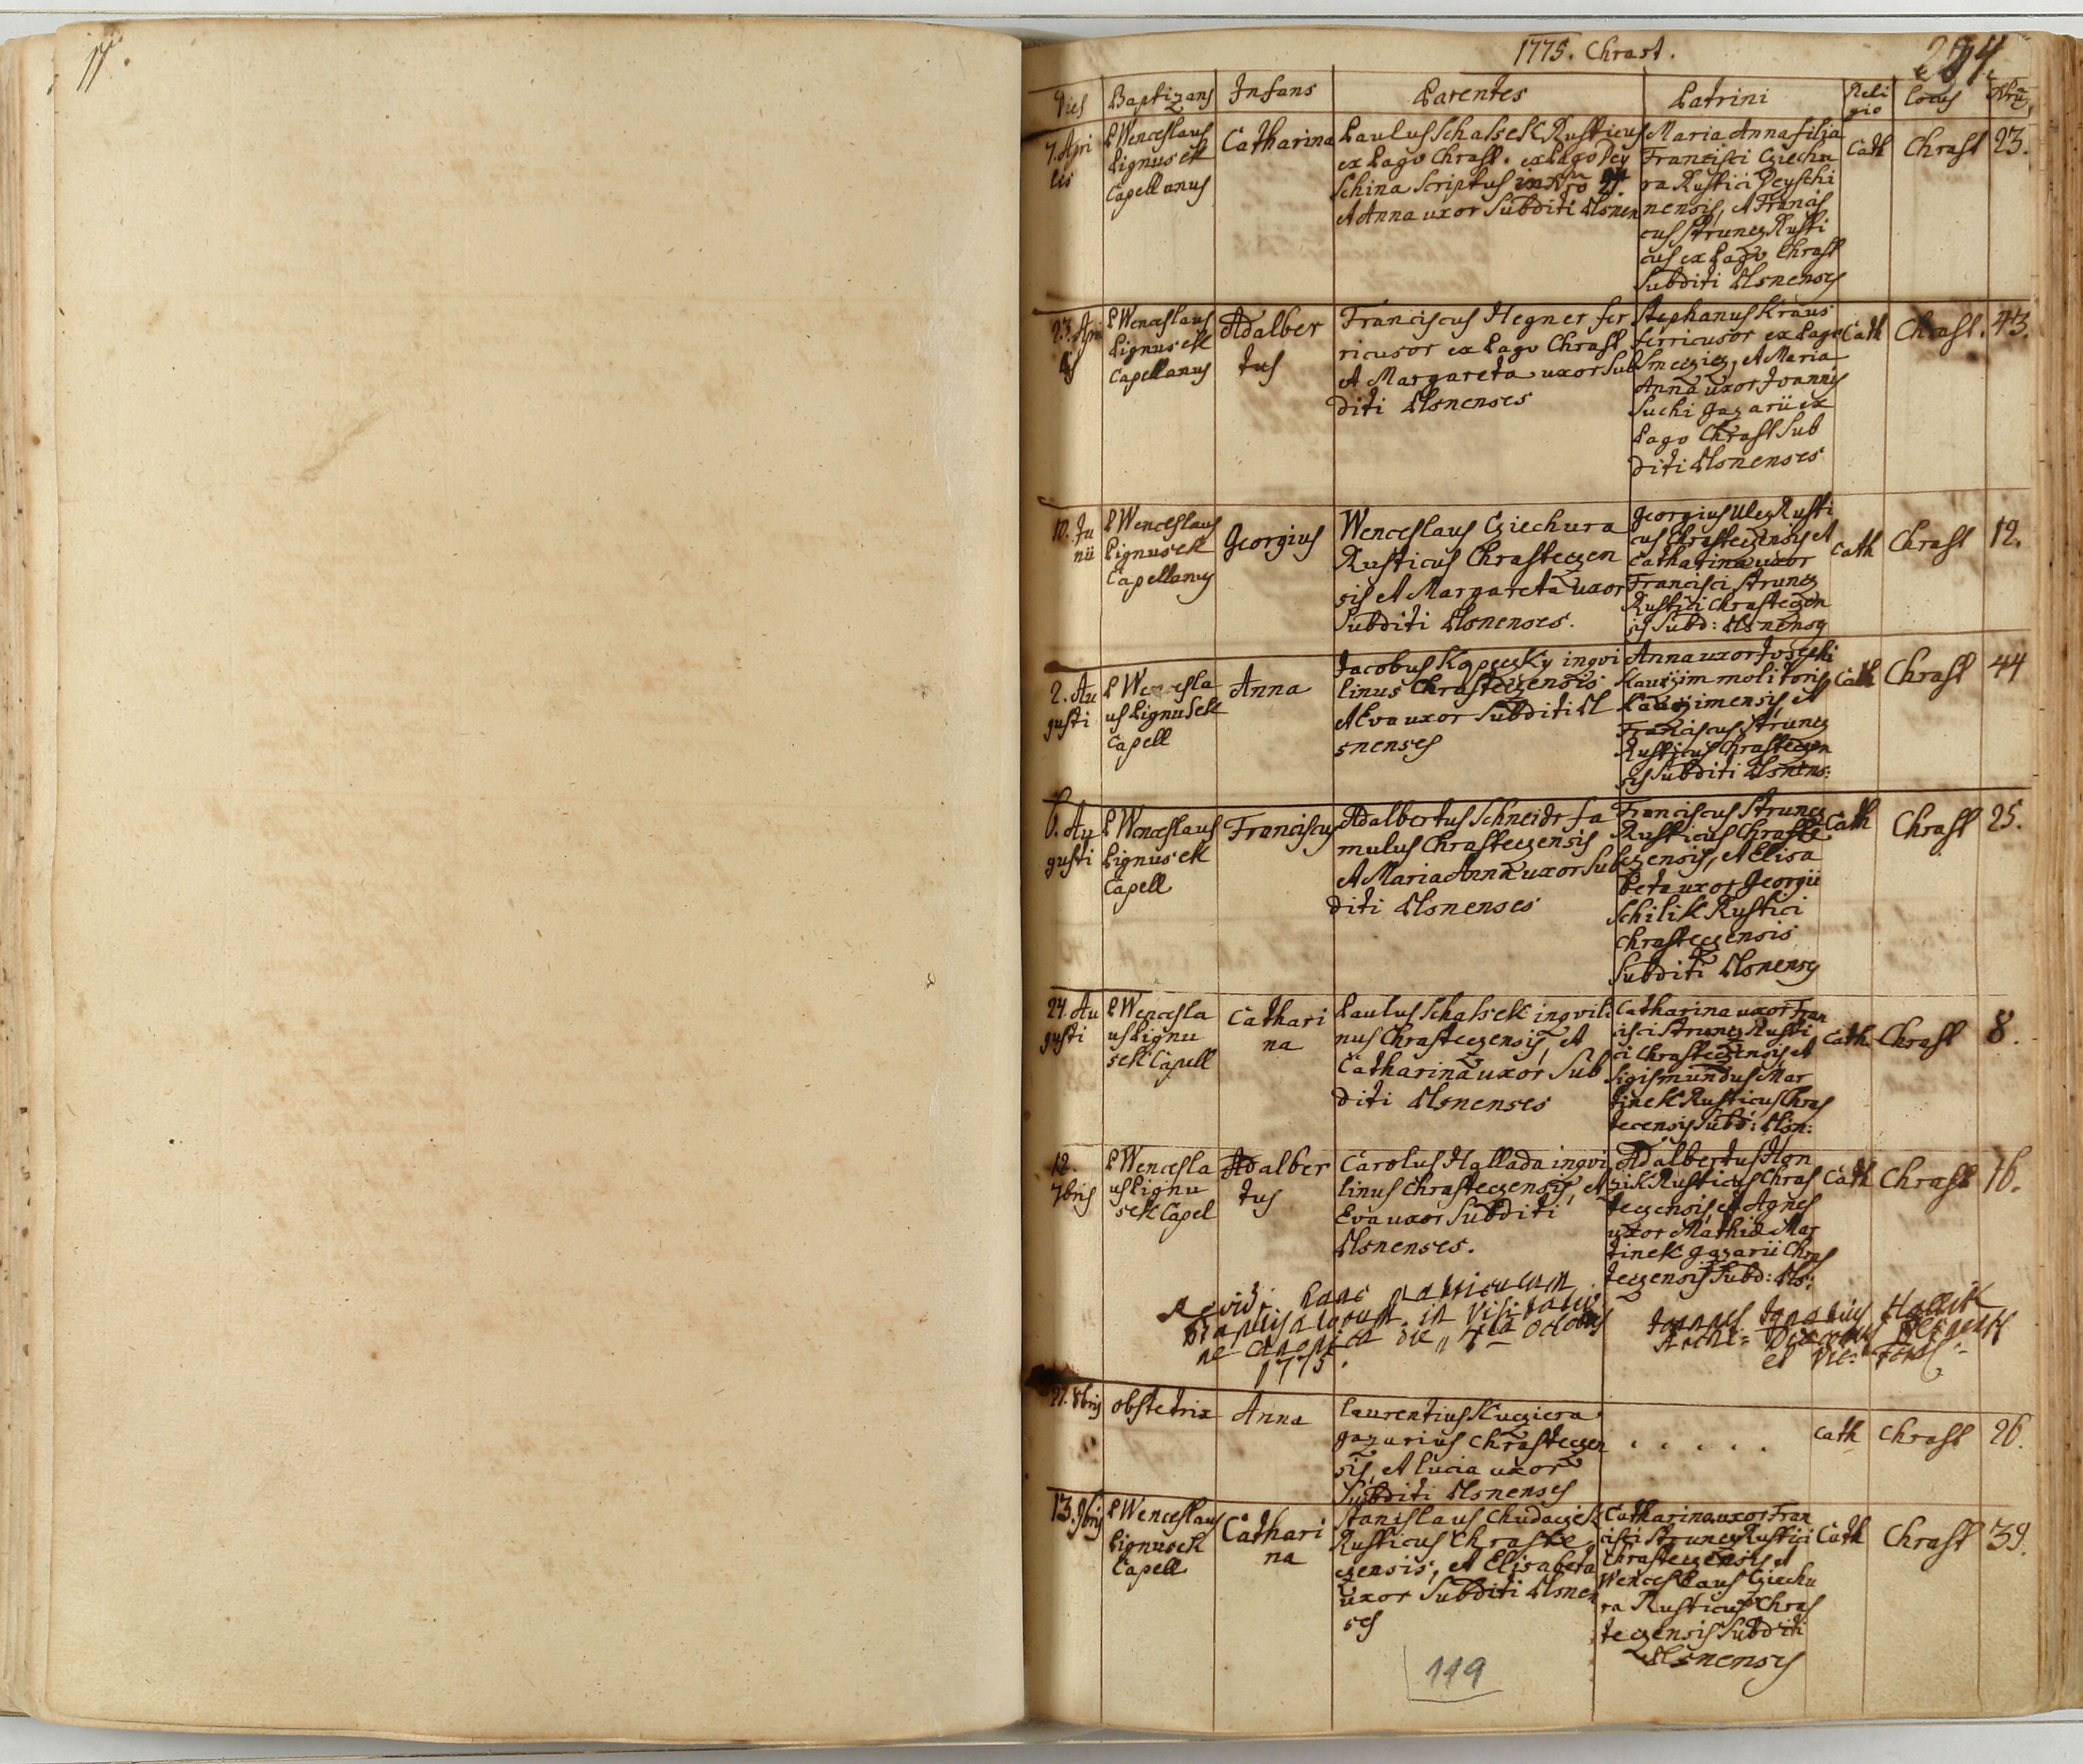 17.
1775. Chrast.
Dies Baptizans Infans Parentes Patrini Reli
gio Locus Nrũ
7. Apri
lis
P Wenceslaus
Lignusek
Capellanus
Catharina
Paulus Schafsek Rusticus
ex Pago Chrast. ex Pago Dey
schina Scriptus in Nro
et Anna uxor Subditi Plsnen
Maria Anna filia
Francisci Cziechu
ra Rustici Deyschi
nensis, et Francis
cus Struncz Rusti
cus ex Pago Chrast
Subditi Plsnenses
Cath
Chrast
23.
23. Apri
lis
P Wenceslaus
Lignusek
Capellanus
Adalber
tus
Franciscus Hegner fer
ricusor ex Pago Chrast
et Margareta uxor Sub
diti Plsnenses
Stephanus Kraus
ferricusor ex Pago
Smeczicz, et Maria
Anna uxor Joannis
Suchi gazarii ex
Pago Chrast Sub
diti Plsnenses
Cath
Chrast.
43.
10. Ju
nii
P Wenceslaus
Lignusek
Capellanus
Georgius
Wenceslaus Cziechura
Rusticus Chrasteczen
sis et Margareta uxor
Subditi Plsnenses.
Georgius Ulcz Rusti
cus Chrasteczensis et
Catharina uxor
Francisci Struncz
Rustici Chrasteczen
sis Subd: Plsnenses
Cath
Chrast
12.
2. Au
gusti
P Wencesla
us Lignusek
Capell
Anna
Jacobus Kopeczky inqvi
linus Chrasteczensis
et Eva uxor Subditi Pl
snenses
Anna uxor Josephi
molitoris
et
Franciscus Struncz
Rusticus Chrasteczen
sis Subditi Plsnens:
Cath
Chrast
44
6. Au
gusti
P Wenceslaus
Lignusek
Capell
Franciscus
Adalbertus Schneidr fa
mulus Chrasteczensis
et Maria Anna uxor Sub
diti Plsnenses
Franciscus Struncz
Rusticus Chraste
czensis, et Elisa
beta uxor Georgii
Schilik Rustici
Chrasteczensis
Subditi Plsnenses
Cath
Chrast
25.
24. Au
gusti
P Wencesla
us Lignu
sek Capell
Cathari
na
Paulus Schafsek inqvili
nus Chrasteczensis, et
Catharina uxor, Sub
diti Plsnenses
Catharina uxor Fran
cisci Struncz Rusti
ci Chrasteczensis et
Sigismundus Mar
tinek Rusticus Chras
tecensis Subd: Plsn:
Cath
Chrast
8.
12.
7bris
P Wencesla
us Lignu
sek Capel
Adalber
tus
Carolus Hallada inqvi
linus Chrasteczensis, et
Eva uxor Subditi
Plsnenses.
Adalbertus Hon
zik Rusticus Chras
teczensis, et Agnes
uxor Mathiæ Mar
tinek gazarii Chras
teczensis Subd: Pls:
Cath
Chrast
16.
Revidi hanc matriculam
Baptisatorum in Visitatio
ne canonica die 4ta Octobris
1775.
Joannes Ignatius
Archi-Diaconus Plsnensis
et Vic: For:
21. 8bris
obstetrix
Anna
Laurentius Kucziera
gazarius Chrasteczen
sis, et Lucia uxor
Subditi Plsnenses
. . . . .
Cath
Chrast
26.
13. 9bris
P Wenceslaus
Lignusek
Capell
Cathari
na
Stanislaus Chudaczek
Rusticus Chraste
czensis, et Elisabeta
uxor Subditi Plsnen
ses
Catharina uxor Fran
cisci Struncz Rustici
Chrasteczensis et
Wenceslaus Cziechu
ra Rusticus Chras
teczensis Subditi
Plsnenses
Cath
Chrast
39.
119